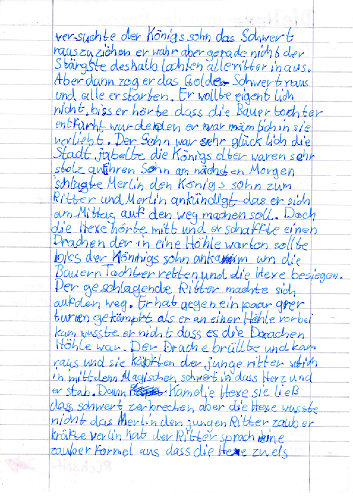 versuchte der Königssohn das Schwert
rauszuziehen er wahr aber gerade nicht der
Stärgste deshalb lachten alle ritter in aus.
Aber dann zog er das Golde Schwert raus
und alle erstarten. Er wollte eigentlich
nicht, biss er hörte dass die Bauer tochter
entführt wurde den er war nämlich in sie
verliebt. Der Sohn war sehr glücklich die
Stadt jubelte die Königs elter waren sehr
stolz auf ihren Sohn am nächsten Morgen
schlugte Merlin den Königs sohn zum
Ritter und Merlin ankündigt das er sich
am Mittag auf den weg machen soll. Doch
die Hexe hörte mitt und erschaffte einen
Drachen der in eine Höhle warten sollte
bics der Königs sohn ankam um die
Bauern Tochter retten und die Hexe besiegen.
Der geschlagende Ritter machte sich
auf den weg. Er hat gegen ein paar
gekämpft als er an einer Höhle vorbei
kam wusste er nicht dass es die Drachen
Höhle war. Der Drache brüllte und kam
raus und sie käpften der junge ritter
in mitt dem Magischen schwert in dass Herz und
er stab. Dann kam die Hexe sie ließ
das schwert zerbrechen aber die Hexe wusste
nicht das Merlin den jungen Ritter zauber
kräfte verlin hat der Ritter sprach eine
zauber Formel aus dass die Hexe zu els